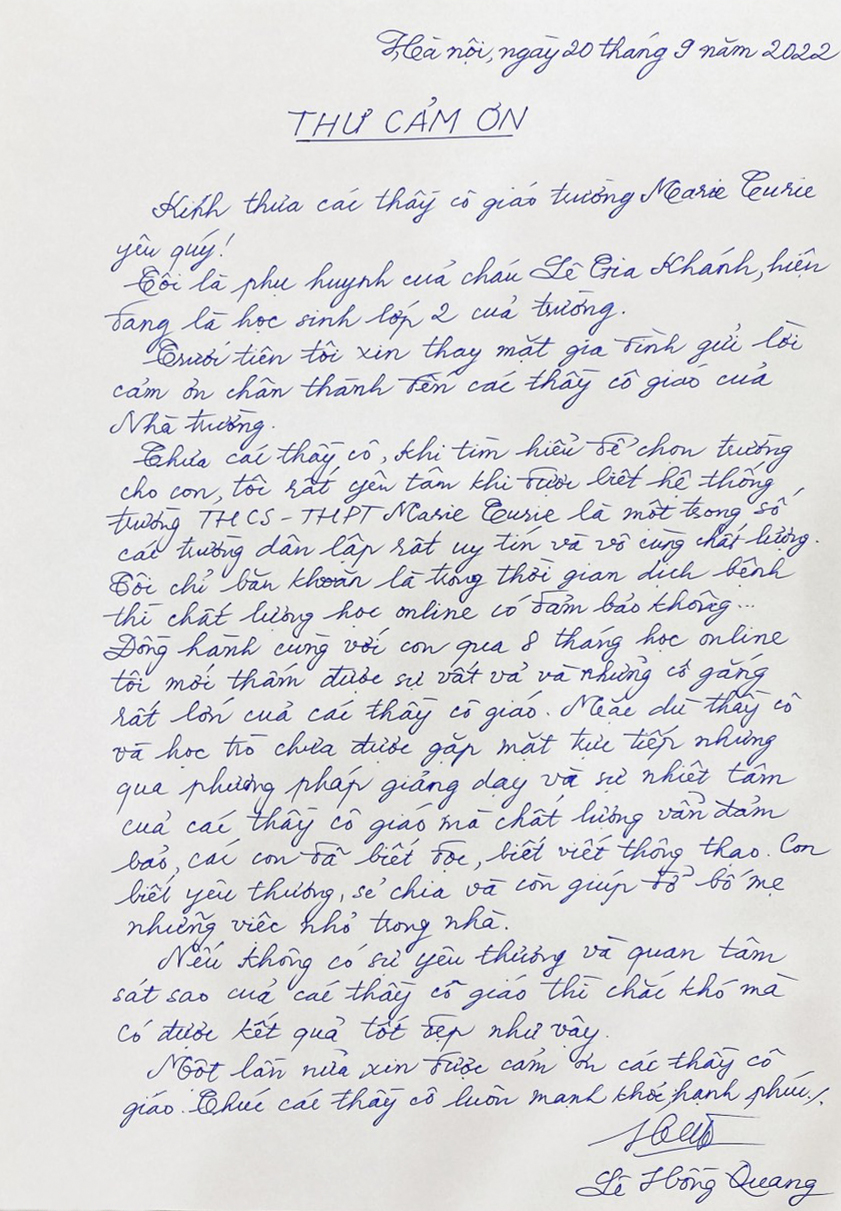 Hà nội, ngày 20 tháng 9 năm 2022
THƯ CẢM ƠN
Kính thưa các thầy cô giáo trường Marie Curie
yêu quý!
Tôi là phụ huynh cuả cháu Lê Gia Khánh, hiện
đang là học sinh lớp 2 cuả trường.
Trước tiên tôi xin thay mặt gia đình gửi lời
cảm ơn chân thành đến các thầy cô giáo cuả
Nhà trường.
Thưa các thầy cô, khi tìm hiểu để chọn trường
cho con, tôi rất yên tâm khi được biết hệ thống
trường THCS - THPT Marie Curie là một trong số
các trường dân lập rất uy tín và vô cùng chất lượng.
Tôi chỉ băn khoăn là trong thời gian dịch bệnh
thì chất lượng học online có đảm bảo không...
Đồng hành cùng với con qua 8 tháng học online
tôi mới thấm được sự vất vả và những cố gắng
rất lớn cuả các thầy cô giáo. Mặc dù thầy cô
và học trò chưa được gặp mặt trực tiếp nhưng
qua phương pháp giảng dạy và sự nhiệt tâm
cuả các thầy cô giáo mà chất lượng vẫn đảm
bảo, các con đã biết đọc, biết viết thông thạo. Con
biết yêu thương, sẻ chia và còn giúp đỡ bố mẹ
những việc nhỏ trong nhà.
Nếu không có sự yêu thương và quan tâm
sát sao cuả các thầy cô giáo thì chắc khó mà
có được kết quả tốt đẹp như vậy.
Một lần nữa xin được cảm ơn các thầy cô
giáo. Chúc các thầy cô luôn mạnh khoẻ, hạnh phúc./.
Lê Hồng Quang